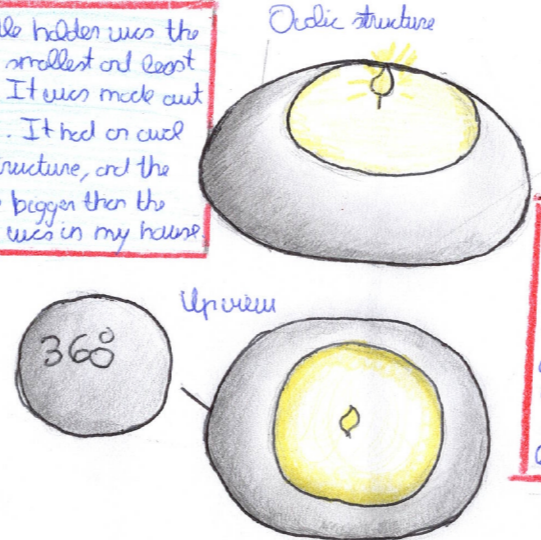 le holder was the
smallest and least
It was made out
. It had an oval
ructure, and the
bigger than the
was in my house.
Ovalic structure
Up view
360°